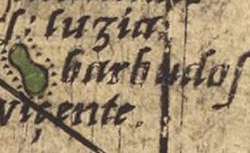 s: luzia.
barbudos
viçente.